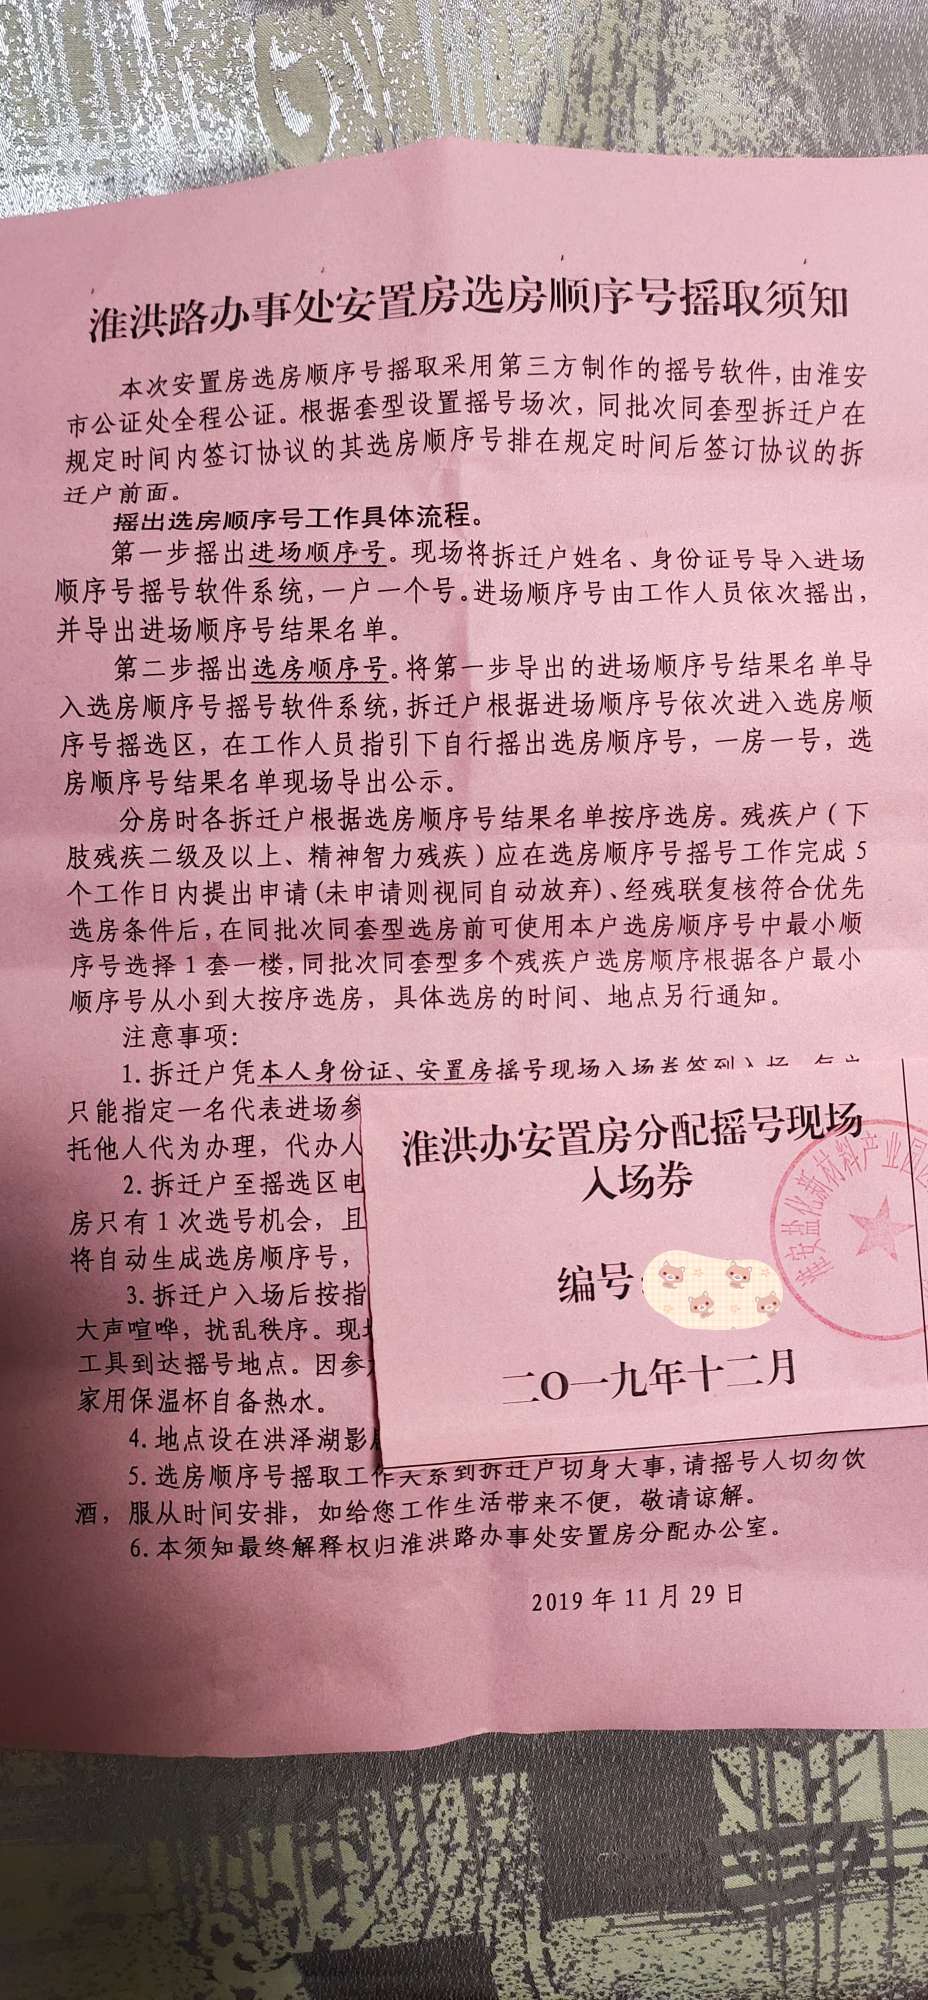 淮洪路办事处安置房选房顺序号摇取须知
本次安置房选房顺序号摇取采用第三方制作的摇号软件，由淮安
市公证处全程公证。根据套型设置摇号场次，同批次同套型拆迁户在
规定时间内签订协议的其选房顺序号排在规定时间后签订协议的拆
迁户前面。
摇出选房顺序号工作具体流程。
第一步摇出进场顺序号。现场将拆迁户姓名、身份证号导入进场
顺序号摇号软件系统，一户一个号。进场顺序号由工作人员依次摇出，
并导出进场顺序号结果名单。
第二步摇出选房顺序号。将第一步导出的进场顺序号结果名单导
入选房顺序号摇号软件系统，拆迁户根据进场顺序号依次进入选房顺
序号摇选区，在工作人员指引下自行摇出选房顺序号，一房一号，选
房顺序号结果名单现场导出公示。
分房时各拆迁户根据选房顺序号结果名单按序选房。残疾户（下
肢残疾二级及以上、精神智力残疾）应在选房顺序号摇号工作完成5
个工作日内提出申请(未申请则视同自动放弃)、经残联复核符合优先
选房条件后，在同批次同套型选房前可使用本户选房顺序号中最小顺
序号选择1套一楼，同批次同套型多个残疾户选房顺序根据各户最小
顺序号从小到大按序选房，具体选房的时间、地点另行通知。
注意事项：
1.拆迁户凭本人身份证、安置房摇号现场入场券签到入场，每户
只能指定一名代表进场参
托他人代为办理，代办人
2.拆迁户至摇选区电
房只有1次选号机会，且
将自动生成选房顺序号，
3.拆迁户入场后按指
大声喧哗，扰乱秩序。现场
工具到达摇号地点。因参
家用保温杯自备热水。
4.地点设在洪泽湖影
5.选房顺序号摇取工作关系到拆迁户切身大事，请摇号人切勿饮
酒，服从时间安排，如给您工作生活带来不便，敬请谅解。
6.本须知最终解释权归淮洪路办事处安置房分配办公室。
2019年11月29日
淮洪办安置房分配摇号现场
入场券
编号：
二〇一九年十二月
淮安盐化新材料产业园区